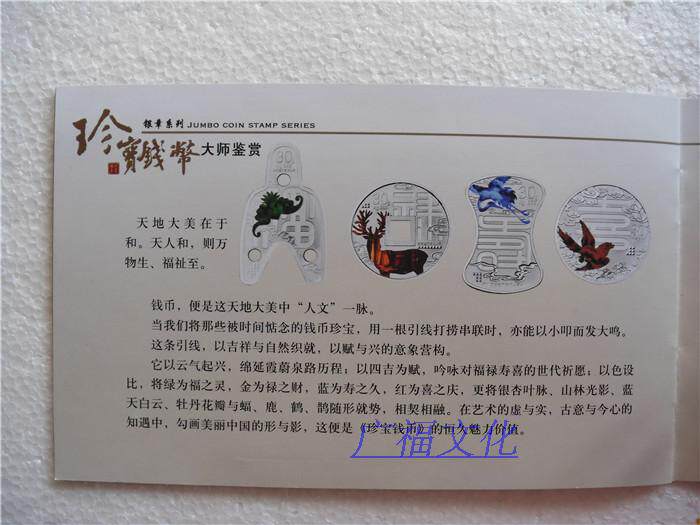 银章系列 JUMBO COIN STAMP SERIES
珍寶錢幣 大师鉴赏
30
30
天地大美在于
和。天人和，则万
物生、福祉至。
钱币，便是这天地大美中“人文”一脉。
当我们将那些被时间惦念的钱币珍宝，用一根引线打捞串联时，亦能以小叩而发大鸣。
这条引线，以吉祥与自然织就，以赋与兴的意象营构。
它以云气起兴，绵延霞蔚泉路历程；以四吉为赋，吟咏对福禄寿喜的世代祈愿；以色设
比，将绿为福之灵，金为禄之财，蓝为寿之久，红为喜之庆，更将银杏叶脉、山林光影、蓝
天白云、牡丹花瓣与蝠、鹿、鹤、鹊随形就势，相契相融。在艺术的虚与实，古意与今心的
知遇中，勾画美丽中国的形与影，这便是《珍宝钱币》的恒久魅力价值。
广福文化